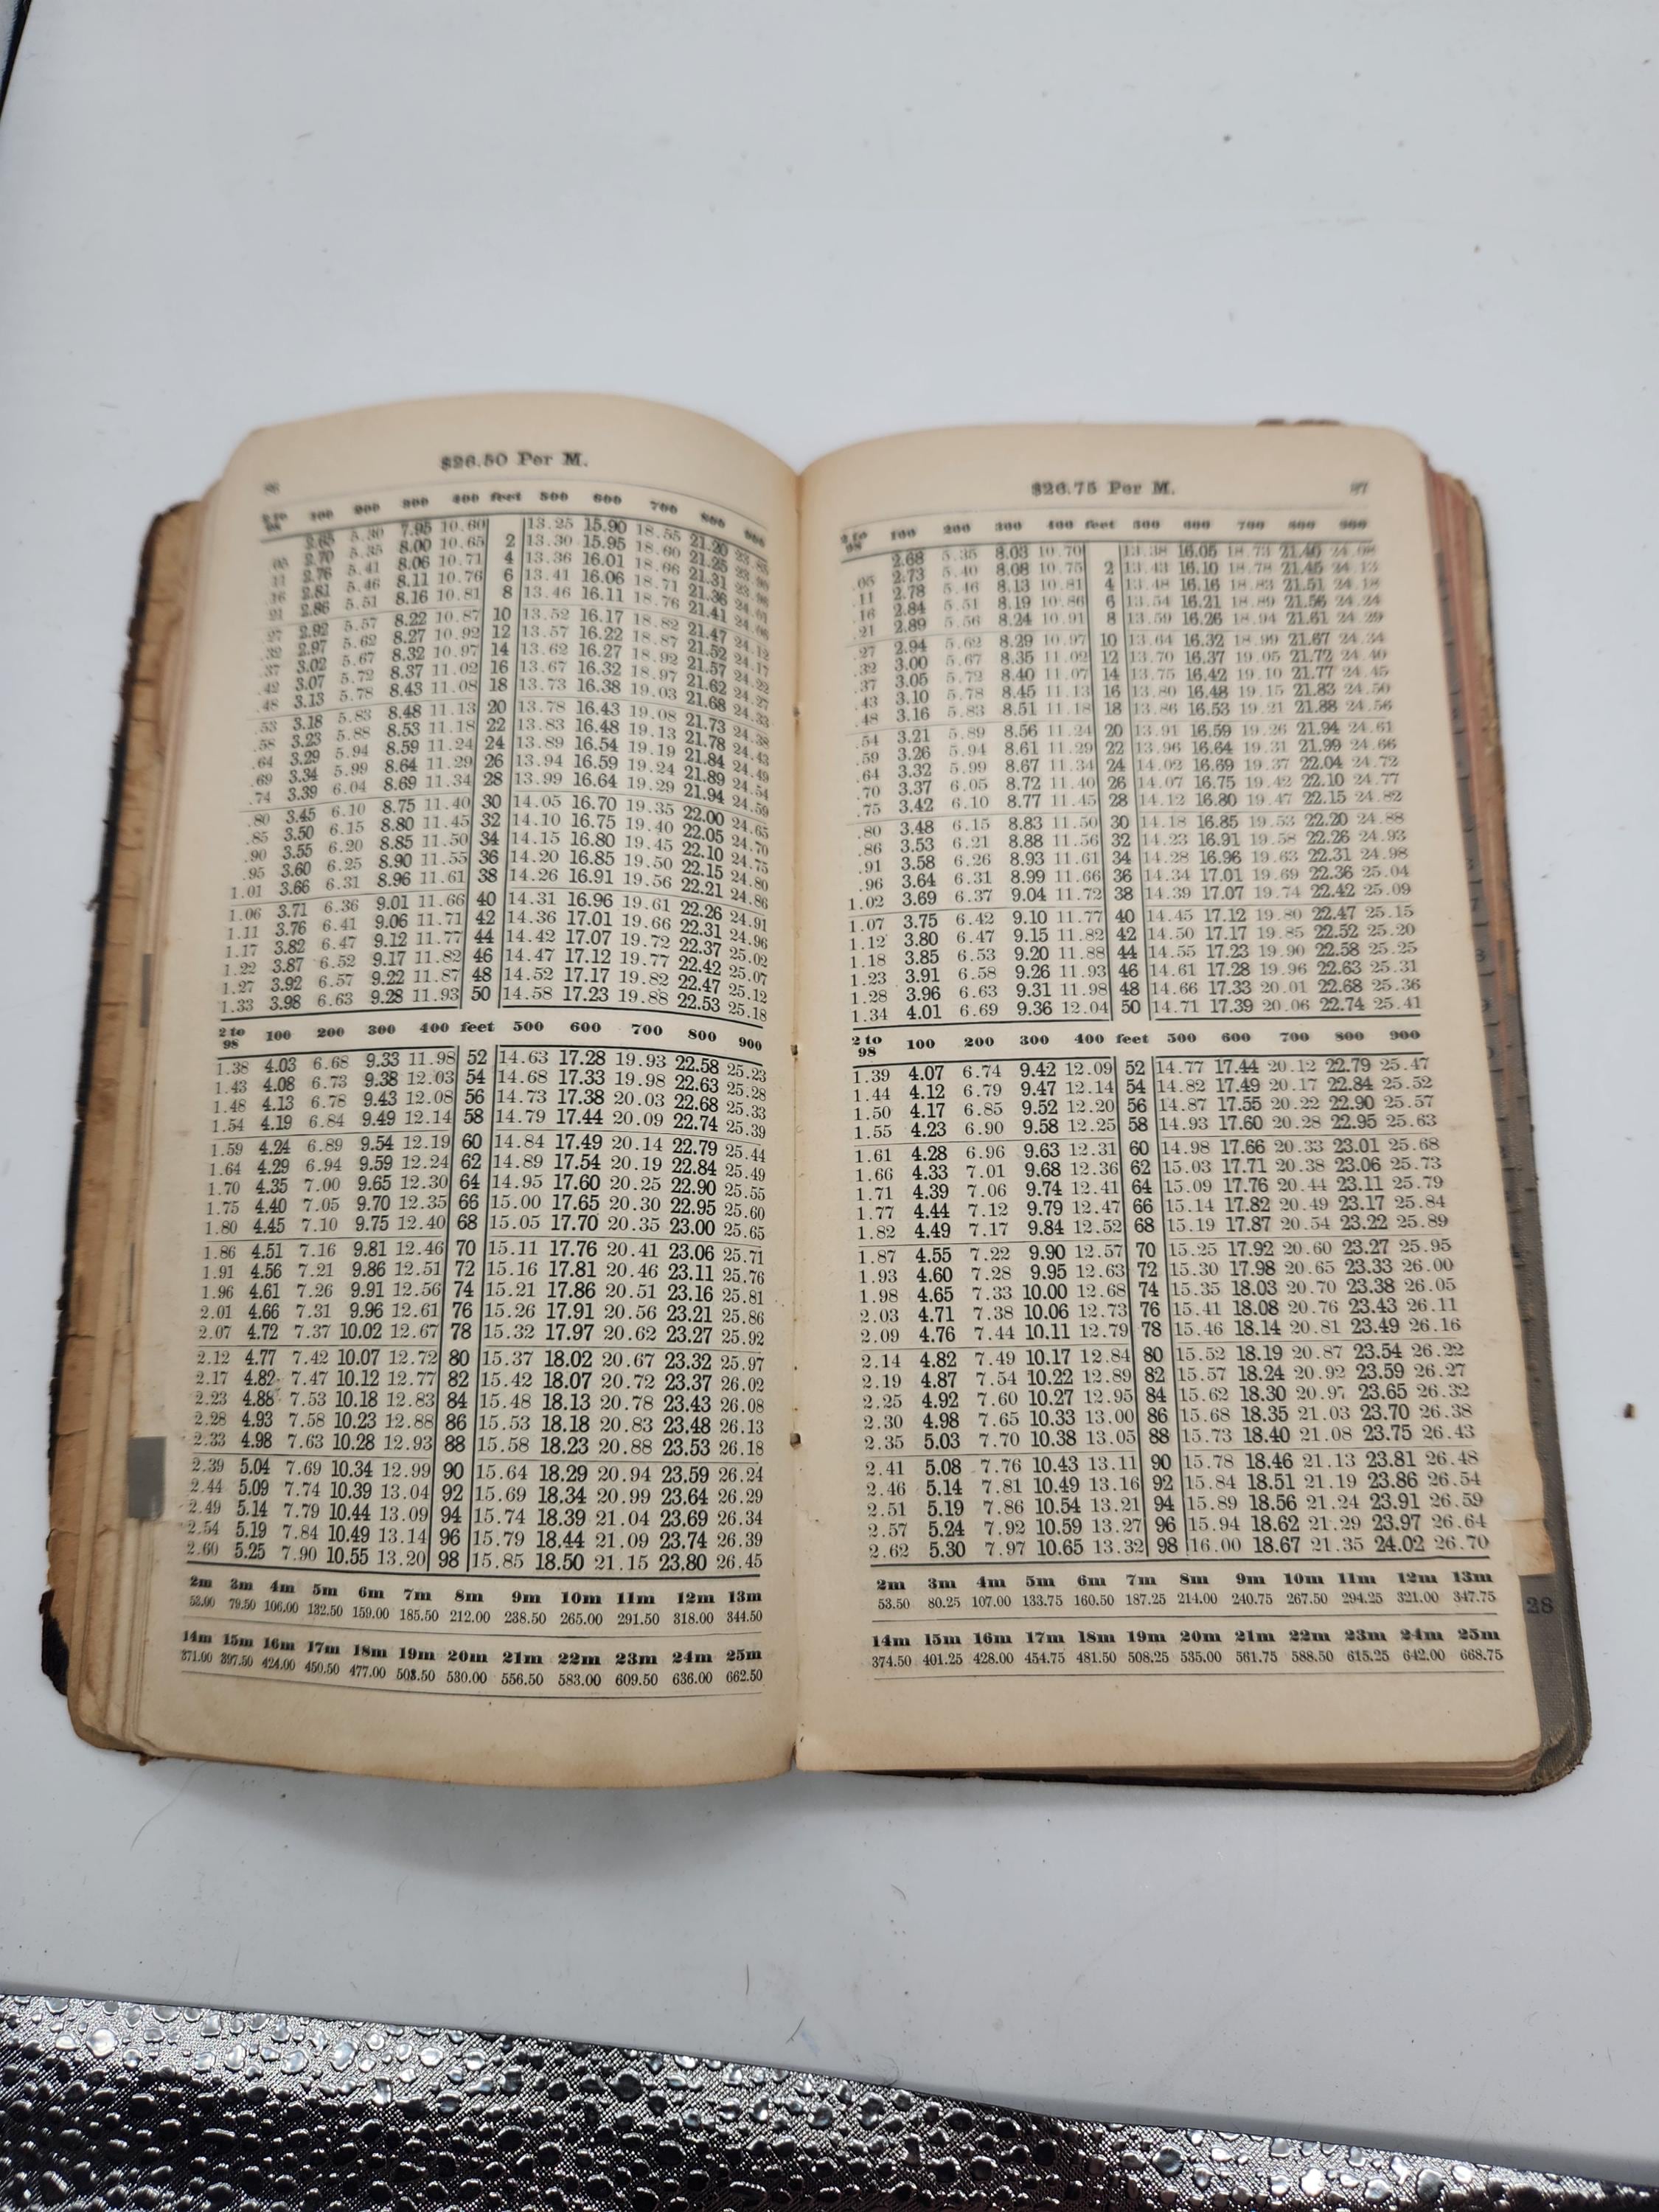 $26.50 Per M.
2 to 98 100 200 300 400 feet 500 600 700 800 900
2.65 5.30 7.95 10.60 13.25 15.90 18.55 21.20
.05 2.70 5.35 8.00 10.65 2 13.30 15.95 18.60 21.25
.11 2.76 5.41 8.06 10.71 4 13.36 16.01 18.66 21.31
.16 2.81 5.46 8.11 10.76 6 13.41 16.06 18.71 21.36
.21 2.86 5.51 8.16 10.81 8 13.46 16.11 18.76 21.41
.27 2.92 5.57 8.22 10.87 10 13.52 16.17 18.82 21.47 24.12
.32 2.97 5.62 8.27 10.92 12 13.57 16.22 18.87 21.52 24.17
.37 3.02 5.67 8.32 10.97 14 13.62 16.27 18.92 21.57 24.22
.42 3.07 5.72 8.37 11.02 16 13.67 16.32 18.97 21.62 24.27
.48 3.13 5.78 8.43 11.08 18 13.73 16.38 19.03 21.68 24.33
.53 3.18 5.83 8.48 11.13 20 13.78 16.43 19.08 21.73 24.38
.58 3.23 5.88 8.53 11.18 22 13.83 16.48 19.13 21.78 24.43
.64 3.29 5.94 8.59 11.24 24 13.89 16.54 19.19 21.84 24.49
.69 3.34 5.99 8.64 11.29 26 13.94 16.59 19.24 21.89 24.54
.74 3.39 6.04 8.69 11.34 28 13.99 16.64 19.29 21.94 24.59
.80 3.45 6.10 8.75 11.40 30 14.05 16.70 19.35 22.00 24.65
.85 3.50 6.15 8.80 11.45 32 14.10 16.75 19.40 22.05 24.70
.90 3.55 6.20 8.85 11.50 34 14.15 16.80 19.45 22.10 24.75
.95 3.60 6.25 8.90 11.55 36 14.20 16.85 19.50 22.15 24.80
1.01 3.66 6.31 8.96 11.61 38 14.26 16.91 19.56 22.21 24.86
1.06 3.71 6.36 9.01 11.66 40 14.31 16.96 19.61 22.26 24.91
1.11 3.76 6.41 9.06 11.71 42 14.36 17.01 19.66 22.31 24.96
1.17 3.82 6.47 9.12 11.77 44 14.42 17.07 19.72 22.37 25.02
1.22 3.87 6.52 9.17 11.82 46 14.47 17.12 19.77 22.42 25.07
1.27 3.92 6.57 9.22 11.87 48 14.52 17.17 19.82 22.47 25.12
1.33 3.98 6.63 9.28 11.93 50 14.58 17.23 19.88 22.53 25.18
2 to 98 100 200 300 400 feet 500 600 700 800 900
1.38 4.03 6.68 9.33 11.98 52 14.63 17.28 19.93 22.58 25.23
1.43 4.08 6.73 9.38 12.03 54 14.68 17.33 19.98 22.63 25.28
1.48 4.13 6.78 9.43 12.08 56 14.73 17.38 20.03 22.68 25.33
1.54 4.19 6.84 9.49 12.14 58 14.79 17.44 20.09 22.74 25.39
1.59 4.24 6.89 9.54 12.19 60 14.84 17.49 20.14 22.79 25.44
1.64 4.29 6.94 9.59 12.24 62 14.89 17.54 20.19 22.84 25.49
1.70 4.35 7.00 9.65 12.30 64 14.95 17.60 20.25 22.90 25.55
1.75 4.40 7.05 9.70 12.35 66 15.00 17.65 20.30 22.95 25.60
1.80 4.45 7.10 9.75 12.40 68 15.05 17.70 20.35 23.00 25.65
1.86 4.51 7.16 9.81 12.46 70 15.11 17.76 20.41 23.06 25.71
1.91 4.56 7.21 9.86 12.51 72 15.16 17.81 20.46 23.11 25.76
1.96 4.61 7.26 9.91 12.56 74 15.21 17.86 20.51 23.16 25.81
2.01 4.66 7.31 9.96 12.61 76 15.26 17.91 20.56 23.21 25.86
2.07 4.72 7.37 10.02 12.67 78 15.32 17.97 20.62 23.27 25.92
2.12 4.77 7.42 10.07 12.72 80 15.37 18.02 20.67 23.32 25.97
2.17 4.82 7.47 10.12 12.77 82 15.42 18.07 20.72 23.37 26.02
2.23 4.88 7.53 10.18 12.83 84 15.48 18.13 20.78 23.43 26.08
2.28 4.93 7.58 10.23 12.88 86 15.53 18.18 20.83 23.48 26.13
2.33 4.98 7.63 10.28 12.93 88 15.58 18.23 20.88 23.53 26.18
2.39 5.04 7.69 10.34 12.99 90 15.64 18.29 20.94 23.59 26.24
2.44 5.09 7.74 10.39 13.04 92 15.69 18.34 20.99 23.64 26.29
2.49 5.14 7.79 10.44 13.09 94 15.74 18.39 21.04 23.69 26.34
2.54 5.19 7.84 10.49 13.14 96 15.79 18.44 21.09 23.74 26.39
2.60 5.25 7.90 10.55 13.20 98 15.85 18.50 21.15 23.80 26.45
2m 3m 4m 5m 6m 7m 8m 9m 10m 11m 12m 13m
53.00 79.50 106.00 132.50 159.00 185.50 212.00 238.50 265.00 291.50 318.00 344.50
14m 15m 16m 17m 18m 19m 20m 21m 22m 23m 24m 25m
371.00 397.50 424.00 450.50 477.00 503.50 530.00 556.50 583.00 609.50 636.00 662.50
$26.75 Per M. 87
2 to 98 100 200 300 400 feet 500 600 700 800 900
2.68 5.35 8.03 10.70 13.38 16.05 18.73 21.40 24.08
.05 2.73 5.40 8.08 10.75 2 13.43 16.10 18.78 21.45 24.13
.11 2.78 5.46 8.13 10.81 4 13.48 16.16 18.83 21.51 24.18
.16 2.84 5.51 8.19 10.86 6 13.54 16.21 18.89 21.56 24.24
.21 2.89 5.56 8.24 10.91 8 13.59 16.26 18.94 21.61 24.29
.27 2.94 5.62 8.29 10.97 10 13.64 16.32 18.99 21.67 24.34
.32 3.00 5.67 8.35 11.02 12 13.70 16.37 19.05 21.72 24.40
.37 3.05 5.72 8.40 11.07 14 13.75 16.42 19.10 21.77 24.45
.43 3.10 5.78 8.45 11.13 16 13.80 16.48 19.15 21.83 24.50
.48 3.16 5.83 8.51 11.18 18 13.86 16.53 19.21 21.88 24.56
.54 3.21 5.89 8.56 11.24 20 13.91 16.59 19.26 21.94 24.61
.59 3.26 5.94 8.61 11.29 22 13.96 16.64 19.31 21.99 24.66
.64 3.32 5.99 8.67 11.34 24 14.02 16.69 19.37 22.04 24.72
.70 3.37 6.05 8.72 11.40 26 14.07 16.75 19.42 22.10 24.77
.75 3.42 6.10 8.77 11.45 28 14.12 16.80 19.47 22.15 24.82
.80 3.48 6.15 8.83 11.50 30 14.18 16.85 19.53 22.20 24.88
.86 3.53 6.21 8.88 11.56 32 14.23 16.91 19.58 22.26 24.93
.91 3.58 6.26 8.93 11.61 34 14.28 16.96 19.63 22.31 24.98
.96 3.64 6.31 8.99 11.66 36 14.34 17.01 19.69 22.36 25.04
1.02 3.69 6.37 9.04 11.72 38 14.39 17.07 19.74 22.42 25.09
1.07 3.75 6.42 9.10 11.77 40 14.45 17.12 19.80 22.47 25.15
1.12 3.80 6.47 9.15 11.82 42 14.50 17.17 19.85 22.52 25.20
1.18 3.85 6.53 9.20 11.88 44 14.55 17.23 19.90 22.58 25.25
1.23 3.91 6.58 9.26 11.93 46 14.61 17.28 19.96 22.63 25.31
1.28 3.96 6.63 9.31 11.98 48 14.66 17.33 20.01 22.68 25.36
1.34 4.01 6.69 9.36 12.04 50 14.71 17.39 20.06 22.74 25.41
2 to 98 100 200 300 400 feet 500 600 700 800 900
1.39 4.07 6.74 9.42 12.09 52 14.77 17.44 20.12 22.79 25.47
1.44 4.12 6.79 9.47 12.14 54 14.82 17.49 20.17 22.84 25.52
1.50 4.17 6.85 9.52 12.20 56 14.87 17.55 20.22 22.90 25.57
1.55 4.23 6.90 9.58 12.25 58 14.93 17.60 20.28 22.95 25.63
1.61 4.28 6.96 9.63 12.31 60 14.98 17.66 20.33 23.01 25.68
1.66 4.33 7.01 9.68 12.36 62 15.03 17.71 20.38 23.06 25.73
1.71 4.39 7.06 9.74 12.41 64 15.09 17.76 20.44 23.11 25.79
1.77 4.44 7.12 9.79 12.47 66 15.14 17.82 20.49 23.17 25.84
1.82 4.49 7.17 9.84 12.52 68 15.19 17.87 20.54 23.22 25.89
1.87 4.55 7.22 9.90 12.57 70 15.25 17.92 20.60 23.27 25.95
1.93 4.60 7.28 9.95 12.63 72 15.30 17.98 20.65 23.33 26.00
1.98 4.65 7.33 10.00 12.68 74 15.35 18.03 20.70 23.38 26.05
2.03 4.71 7.38 10.06 12.73 76 15.41 18.08 20.76 23.43 26.11
2.09 4.76 7.44 10.11 12.79 78 15.46 18.14 20.81 23.49 26.16
2.14 4.82 7.49 10.17 12.84 80 15.52 18.19 20.87 23.54 26.22
2.19 4.87 7.54 10.22 12.89 82 15.57 18.24 20.92 23.59 26.27
2.25 4.92 7.60 10.27 12.95 84 15.62 18.30 20.97 23.65 26.32
2.30 4.98 7.65 10.33 13.00 86 15.68 18.35 21.03 23.70 26.38
2.35 5.03 7.70 10.38 13.05 88 15.73 18.40 21.08 23.75 26.43
2.41 5.08 7.76 10.43 13.11 90 15.78 18.46 21.13 23.81 26.48
2.46 5.14 7.81 10.49 13.16 92 15.84 18.51 21.19 23.86 26.54
2.51 5.19 7.86 10.54 13.21 94 15.89 18.56 21.24 23.91 26.59
2.57 5.24 7.92 10.59 13.27 96 15.94 18.62 21.29 23.97 26.64
2.62 5.30 7.97 10.65 13.32 98 16.00 18.67 21.35 24.02 26.70
2m 3m 4m 5m 6m 7m 8m 9m 10m 11m 12m 13m
53.50 80.25 107.00 133.75 160.50 187.25 214.00 240.75 267.50 294.25 321.00 347.75
14m 15m 16m 17m 18m 19m 20m 21m 22m 23m 24m 25m
374.50 401.25 428.00 454.75 481.50 508.25 535.00 561.75 588.50 615.25 642.00 668.75
28